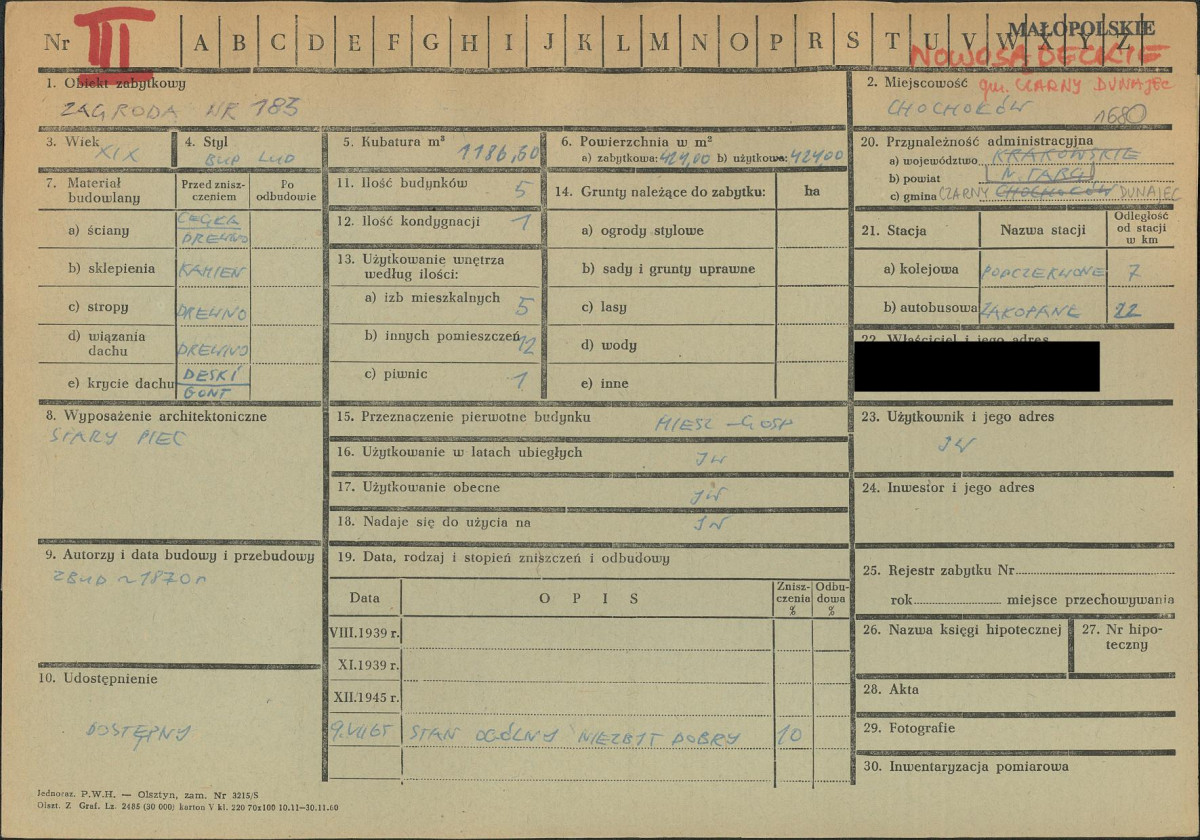 Nr III A B C D E F G H I J K L M N O P R S T U V W X Y Z
MAŁOPOLSKIE
NOWOSĄDECKIE
1. Obiekt zabytkowy
ZAGRODA NR 185
2. Miejscowość gm. CZARNY DUNAJEC
CHOCHOŁÓW
1680
3. Wiek
XIX
4. Styl
BUD LUD
5. Kubatura m³ 1186,60
6. Powierzchnia w m²
a) zabytkowa: 424,00 b) użytkowa: 424,00
7. Materiał budowlany
Przed zniszczeniem
Po odbudowie
a) ściany CEGŁA DREWNO
b) sklepienia KAMIEŃ
c) stropy DREWNO
d) wiązania dachu DREWNO
e) krycie dachu DESKI GONT
8. Wyposażenie architektoniczne
STARY PIEC
9. Autorzy i data budowy i przebudowy
ZBUD ~ 1870 r
10. Udostępnienie
DOSTĘPNY
11. Ilość budynków 5
12. Ilość kondygnacji 1
13. Użytkowanie wnętrza według ilości:
a) izb mieszkalnych 5
b) innych pomieszczeń 12
c) piwnic 1
14. Grunty należące do zabytku: ha
a) ogrody stylowe
b) sady i grunty uprawne
c) lasy
d) wody
e) inne
15. Przeznaczenie pierwotne budynku MIESZ - GOSP
16. Użytkowanie w latach ubiegłych JW
17. Użytkowanie obecne JW
18. Nadaje się do użycia na JW
19. Data, rodzaj i stopień zniszczeń i odbudowy
Data
OPIS
Zniszczenia %
Odbudowa %
VIII.1939 r.
XI.1939 r.
XII.1945 r.
9.VII65 STAN OGÓLNY NIEZBYT DOBRY 10
20. Przynależność administracyjna
a) województwo KRAKOWSKIE
b) powiat N. TARG
c) gmina CZARNY CHOCHOŁÓW DUNAJEC
21. Stacja
Nazwa stacji
Odległość od stacji w km
a) kolejowa PODCZERWONE 7
b) autobusowa ZAKOPANE 22
22. Właściciel i jego adres
23. Użytkownik i jego adres
JW
24. Inwestor i jego adres
25. Rejestr zabytku Nr
rok miejsce przechowywania
26. Nazwa księgi hipotecznej
27. Nr hipoteczny
28. Akta
29. Fotografie
30. Inwentaryzacja pomiarowa
Jednoraz. P.W.H. — Olsztyn, zam. Nr 3215/S
Olszt. Z Graf. Lz. 2485 (30 000) karton V kl. 220 70x100 10.11—30.11.60